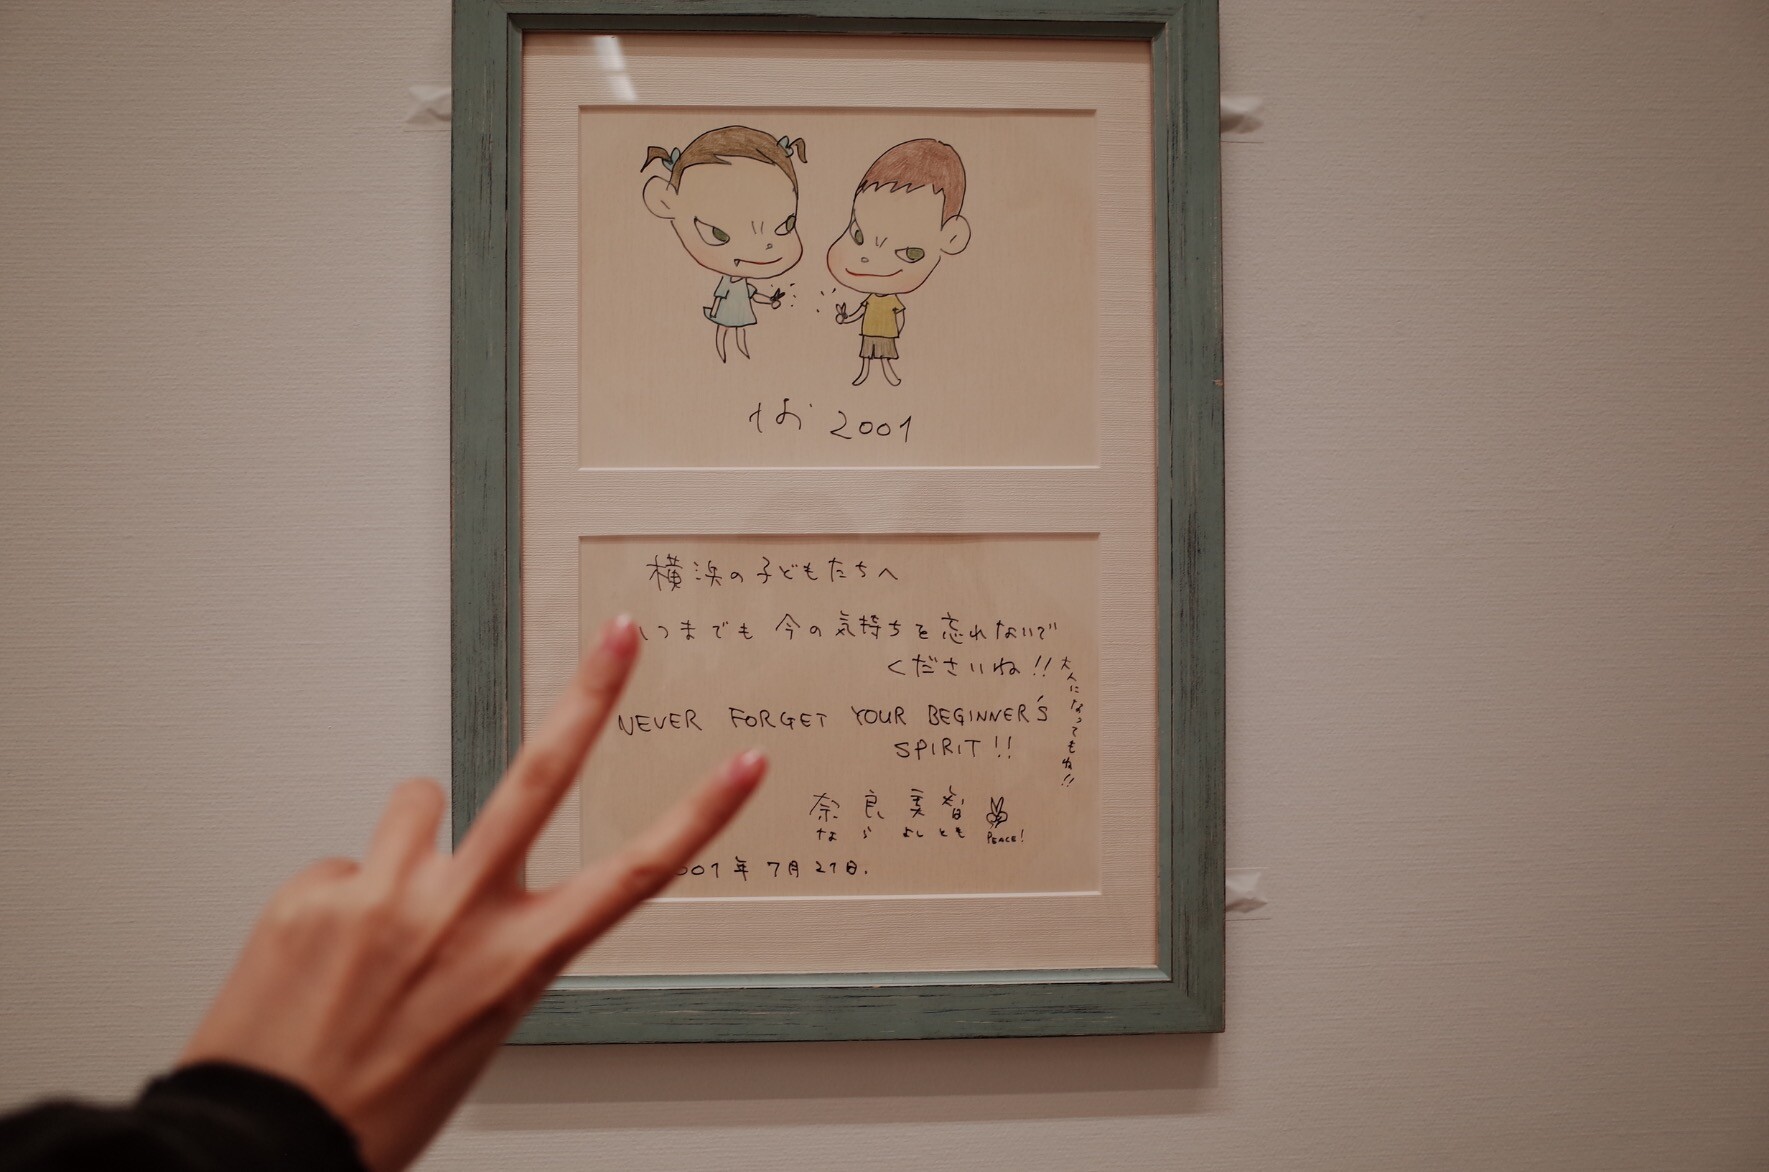 なお 2001
横浜の子どもたちへ
いつまでも 今の気持ちを忘れないで
くださいね!!
大人になってもね!!
NEVER FORGET YOUR BEGINNER'S
SPIRIT!!
奈良美智
なら よしとも
PEACE!
001年7月21日.